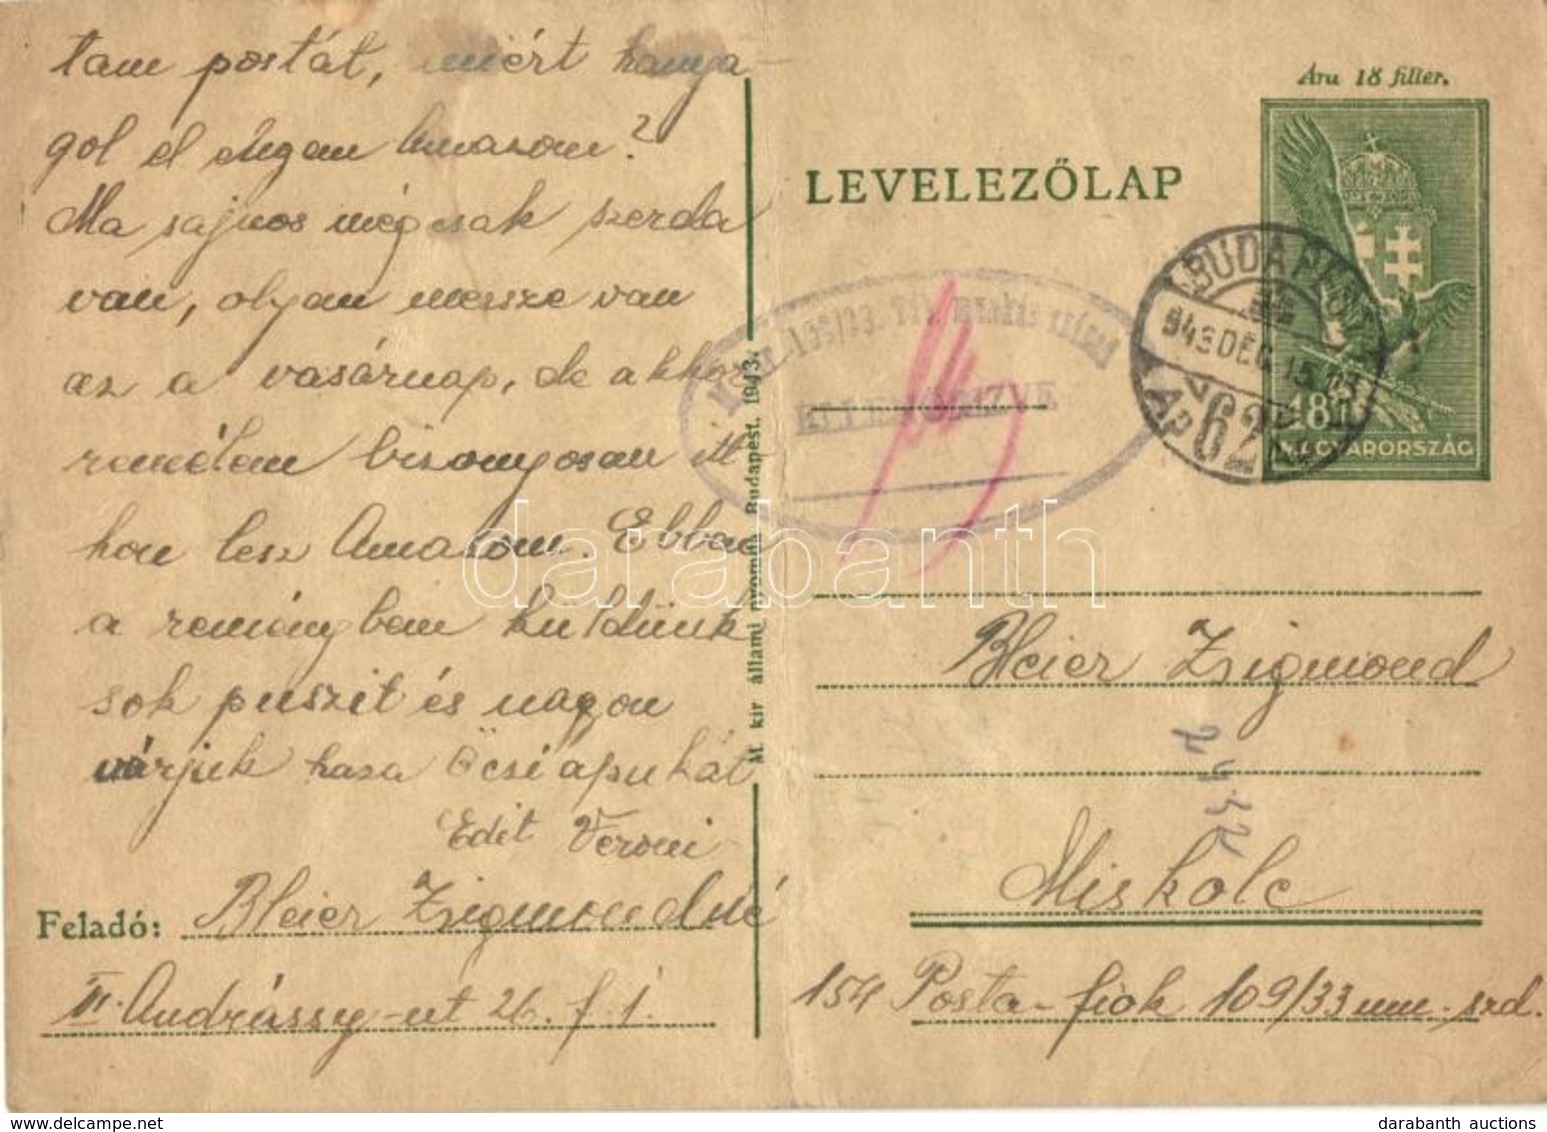 tam postát, miért hanya-
gol el Amasom?
Ma sajnos mégcsak szerda
van, olyan messze van
az a vasárnap, de akkor
remélem bizonyosan itt
hon lesz Amasom. Ebben
a reményben küldünk
sok puszit és nagyon
várjuk haza Öcsi apukát
Edit Veroni
Feladó: Bleier Zsigmondné
Andrássy-ut 26. f. 1.
M. kir. állami nyomda, Budapest. 1943.
Áru 18 fillér.
LEVELEZŐLAP
18f
MAGYARORSZÁG
BUDAPEST
943 DEC. 15.
62
ELLENŐRIZVE
Bleier Zsigmond
2432
Miskolc
154 Posta-fiók 109/33 mu. szd.
darabanth
darabanth auctions